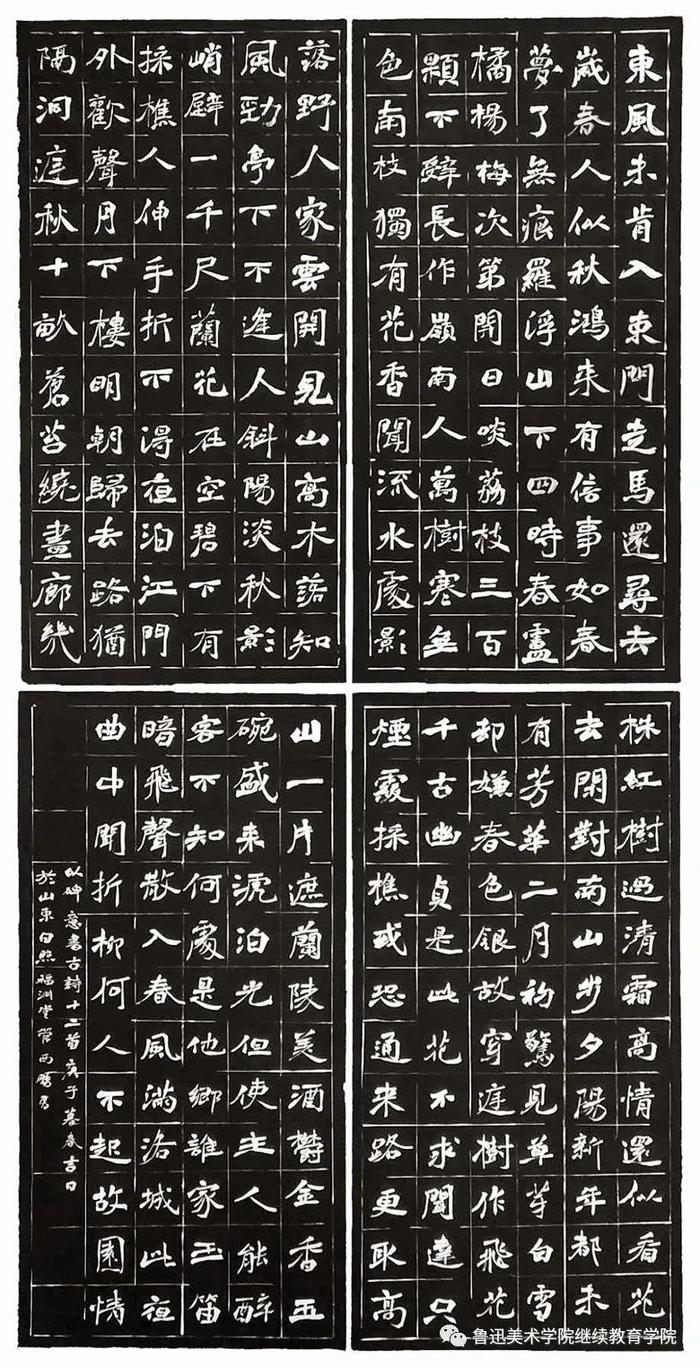 東風未肯入東門走馬還尋去
歲春人似秋鴻来有信事如春
夢了無痕羅浮山下四時春盧
橘楊梅次第開日啖荔枝三百
顆不辭長作嶺南人萬樹寒無
色南枝獨有花香聞流水處影
落野人家雲開見山高木落知
風勁亭下不逢人斜陽淡秋影
峭壁一千尺蘭花在空碧下有
採樵人伸手折不得夜泊江門
外歡聲月下樓明朝歸去路猶
隔洞庭秋十畝蒼苔繞畫廊幾
株紅樹過清霜高情還似看花
去閑對南山步夕陽新年都未
有芳華二月初驚見草芽白雪
却嫌春色銀故穿庭樹作飛花
千古幽貞是此花不求聞達只
煙霞採樵或恐通来路更取高
山一片遮蘭陵美酒鬱金香玉
碗盛来琥珀光但使主人能醉
客不知何處是他鄉誰家玉笛
暗飛聲散入春風滿洛城此夜
曲中聞折柳何人不起故園情
以碑意書古詩十二首庚子暮春吉日
於山東日照福洲堂管西書
鲁迅美术学院继续教育学院